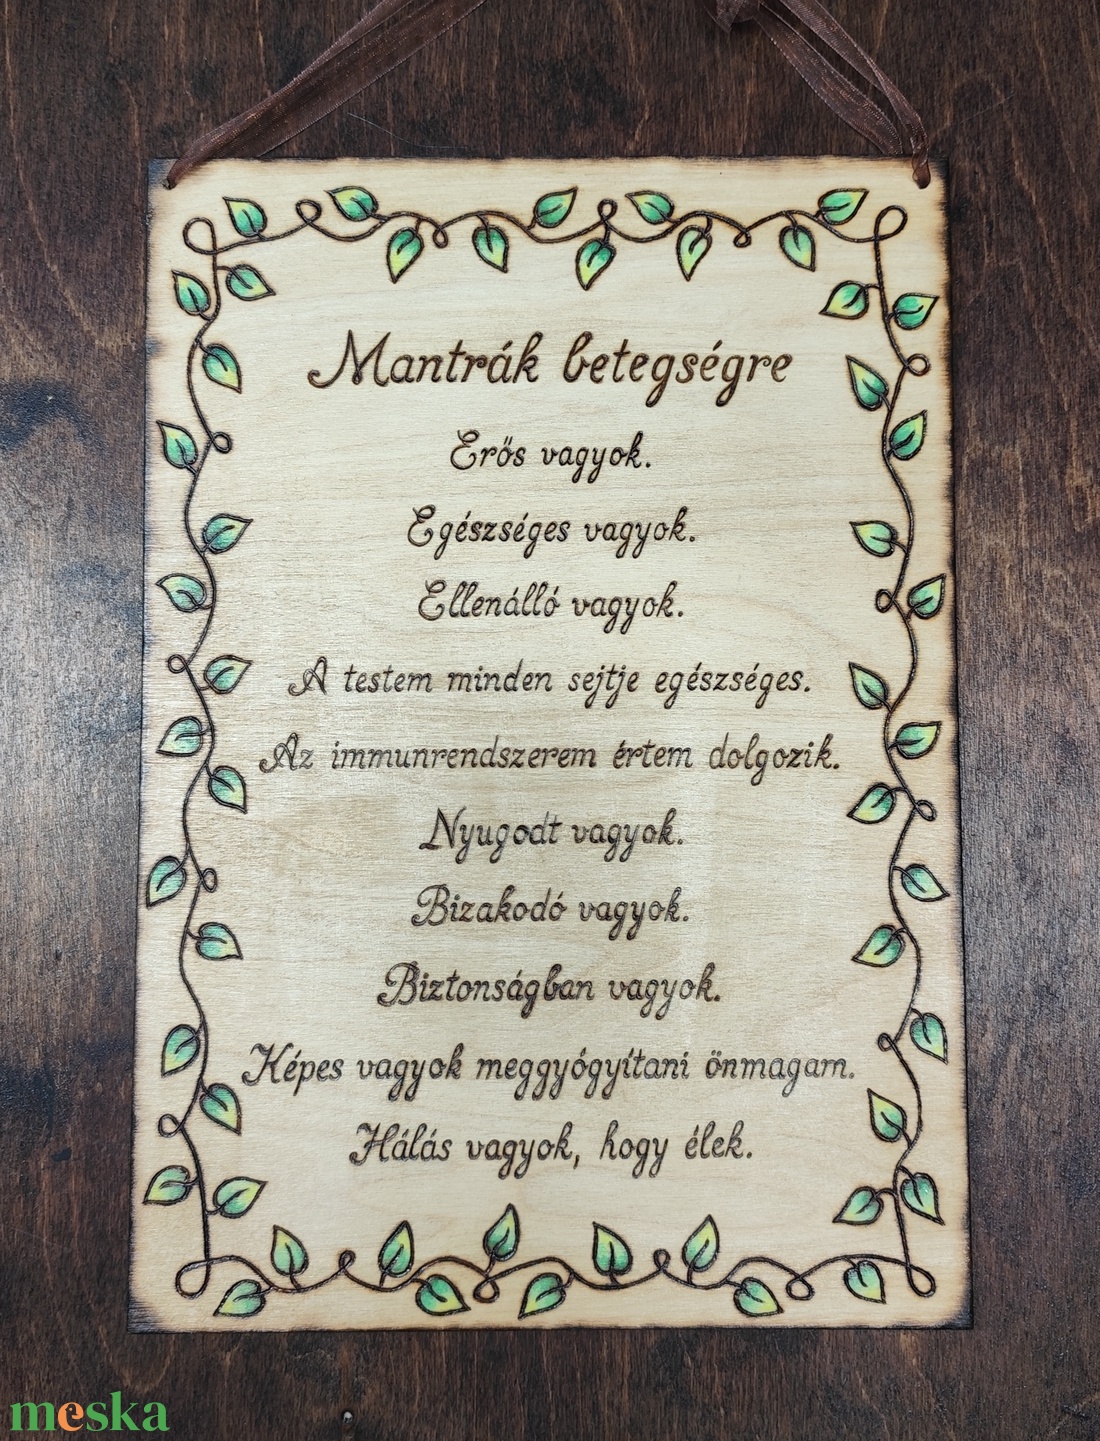 Mantrák betegségre
Erős vagyok.
Egészséges vagyok.
Ellenálló vagyok.
A testem minden sejtje egészséges.
Az immunrendszerem értem dolgozik.
Nyugodt vagyok.
Bizakodó vagyok.
Biztonságban vagyok.
Képes vagyok meggyógyítani önmagam.
Hálás vagyok, hogy élek.
meska